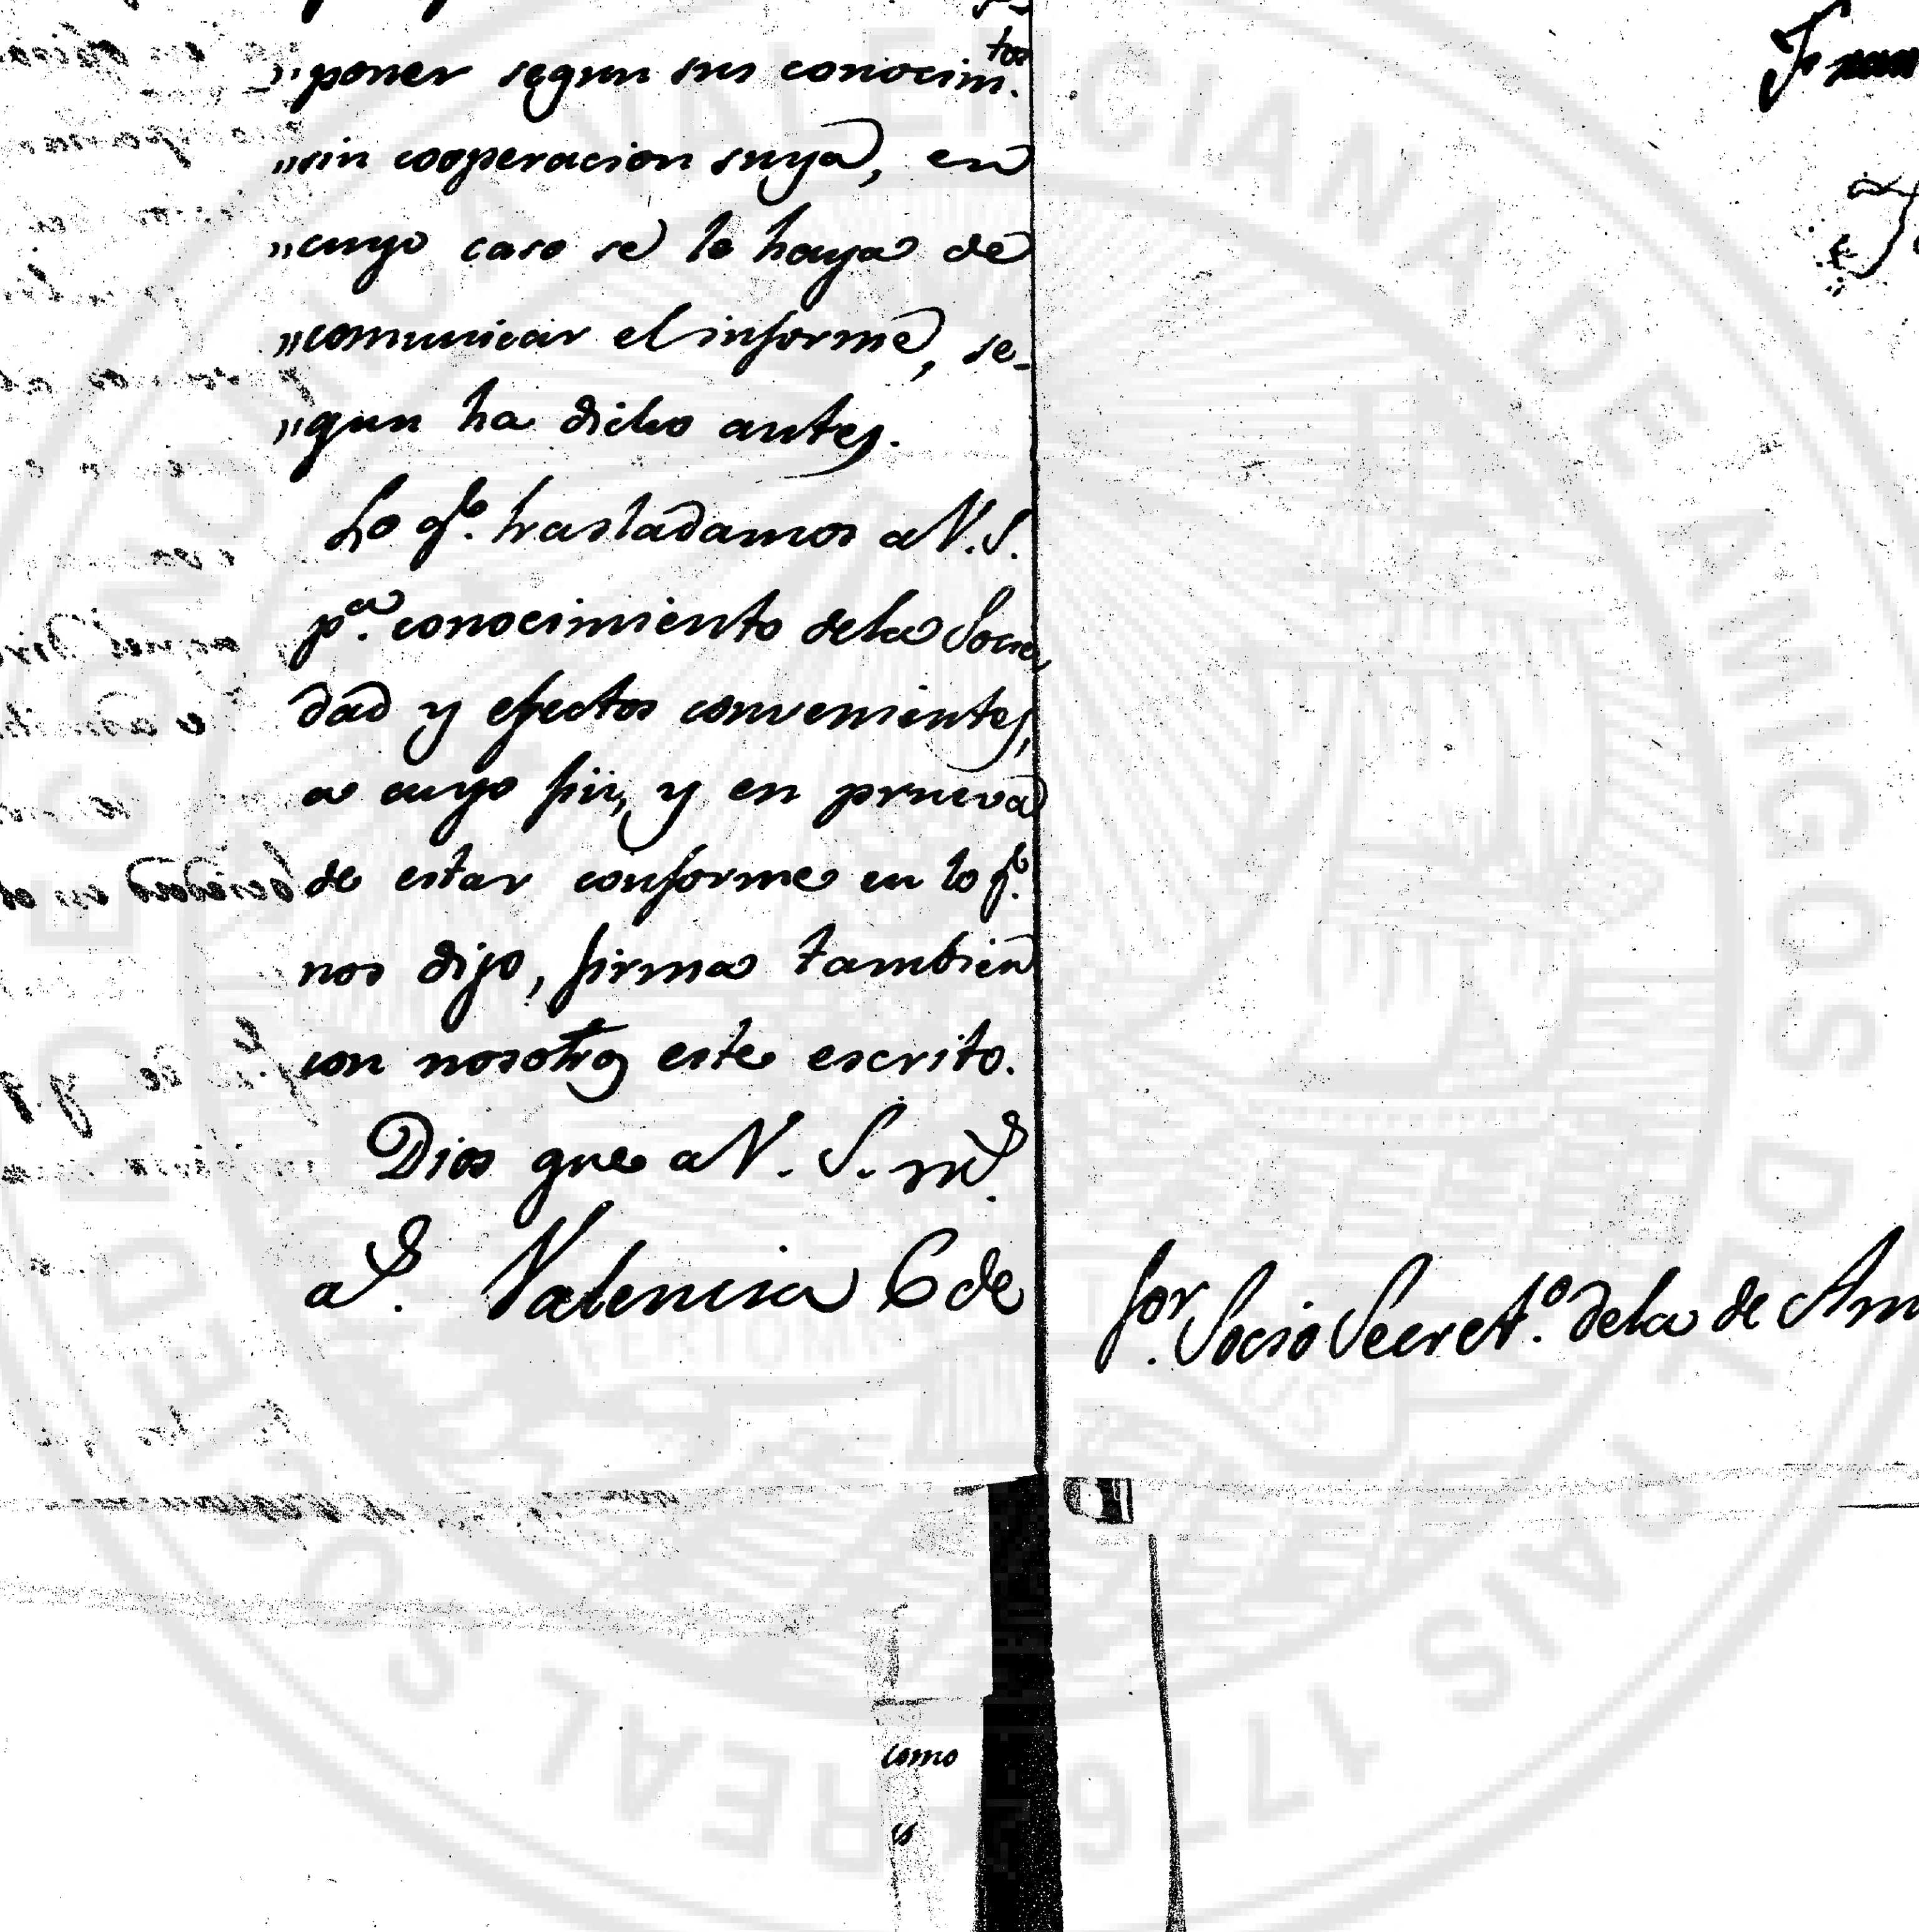 "poner segun sus conocim.tos
"sin cooperacion suya, en
"cuyo caso se le haya de
"comunicar el informe, se-
"gun ha dicho antes.
Lo q.e trasladamos a V.S.
p.a conocimiento dela Socie,
dad y efectos convenientes,
a cuyo fin, y en prueva
de estar conforme en lo q.e
nos dijo, firma tambien
con nosotros este escrito.
Dios gue a V. S. m.s
a.s Valencia 6 de
Sor. Socio Secret.o dela de Am
como
REAL SOCIEDAD ECONOMICA VALENCIANA DE AMIGOS DEL PAIS 1776